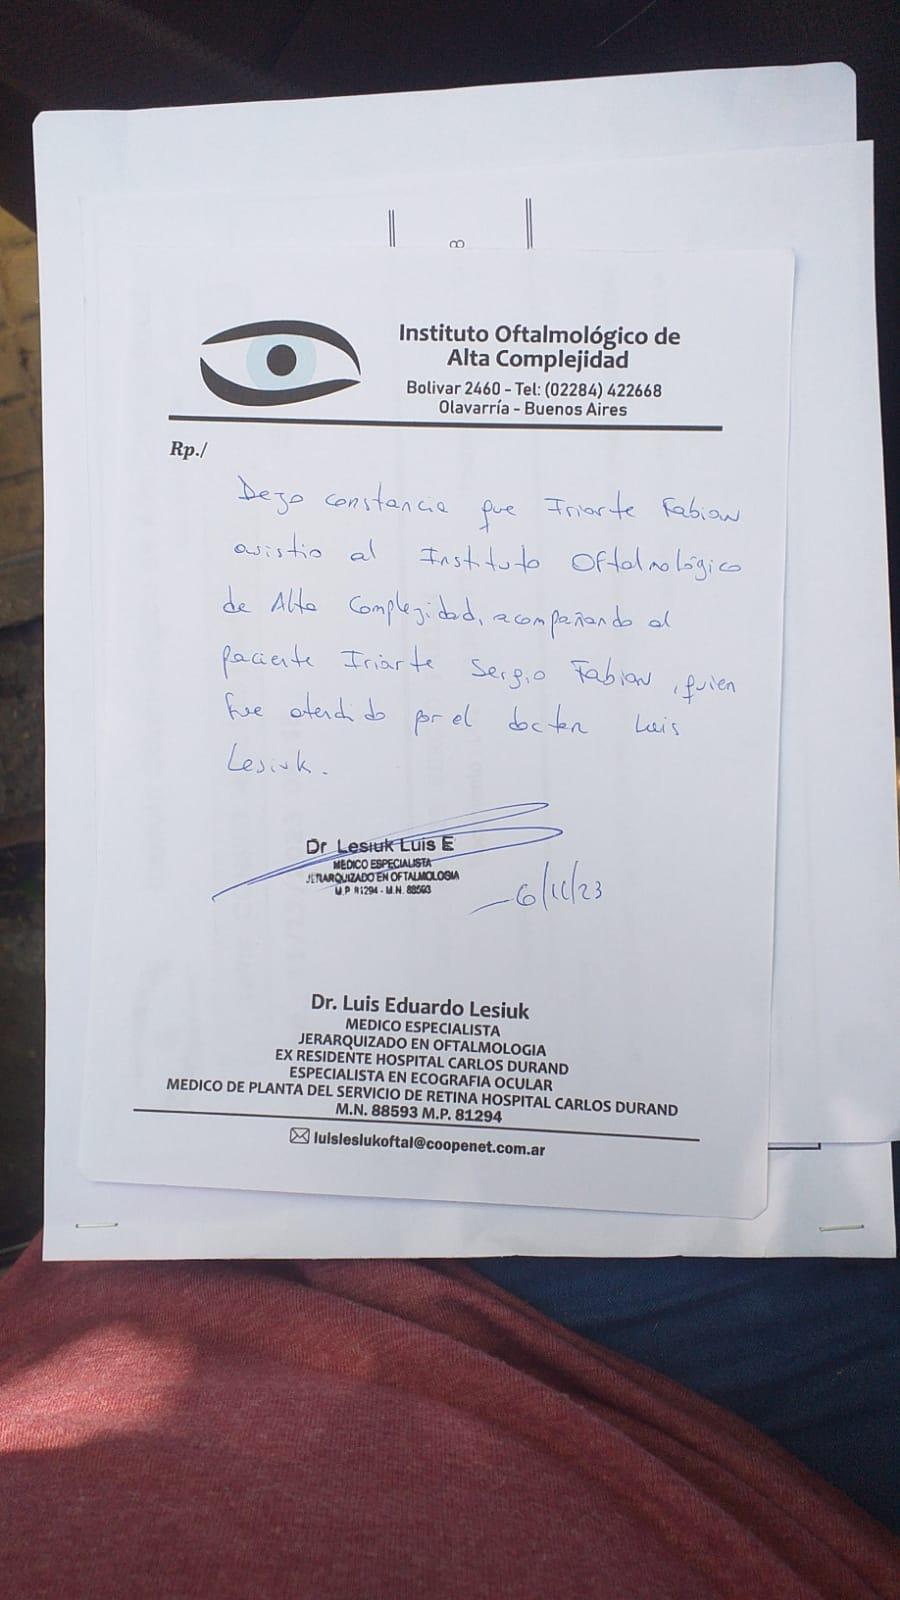 8
Instituto Oftalmológico de
Alta Complejidad
Bolivar 2460 - Tel: (02284) 422668
Olavarría - Buenos Aires
Rp./
Dejo constancia que Iriarte Fabian
asistio al Instituto Oftalmológico
de Alta Complejidad, acompañando al
paciente Iriarte Sergio Fabian, quien
fue atendido por el doctor Luis
Lesiuk.
Dr Lesiuk Luis E
MEDICO ESPECIALISTA
JERARQUIZADO EN OFTALMOLOGIA
M.P. 81294 - M.N. 88593
6/11/23
Dr. Luis Eduardo Lesiuk
MEDICO ESPECIALISTA
JERARQUIZADO EN OFTALMOLOGIA
EX RESIDENTE HOSPITAL CARLOS DURAND
ESPECIALISTA EN ECOGRAFIA OCULAR
MEDICO DE PLANTA DEL SERVICIO DE RETINA HOSPITAL CARLOS DURAND
M.N. 88593 M.P. 81294
luislesiukoftal@coopenet.com.ar